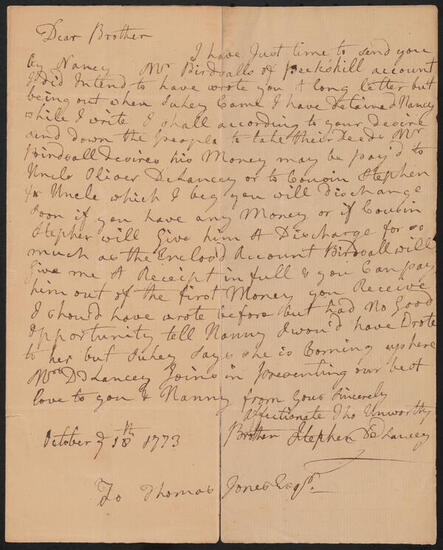 Dear Brother
I have Just time to send you
by Nancy Mr Birdsalls of Peekskill account
I did Intend to have wrote you A long letter but
being out when Suhey Came I have Detained Nancy
while I write I shall according to your Desire
send down the people to take their Deeds Mr
Birdsall Desires his Money may be pay'd to
Uncle Oliver DeLancey or to Cousin Stephen
pr Uncle which I beg you will Discharge
soon if you have any Money or if Cousin
Stepher will Give him A Discharge for so
much as the Enclosd Account Birdsall will
Give me A Receipt in full & you Can pay
him out of the first Money you Receive
I should have wrote before but had No Good
Opportunity tell Nanny I wou'd have Wrote
to her but Suhey Says she is Coming up here
Mrs DeLancey Joins in presenting our best
love to you & Nanny from Your Sincerely
affectionate tho Unworthy
Brother Stephen DeLancey
October 18th 1773
To Thomas Jones Esqr.